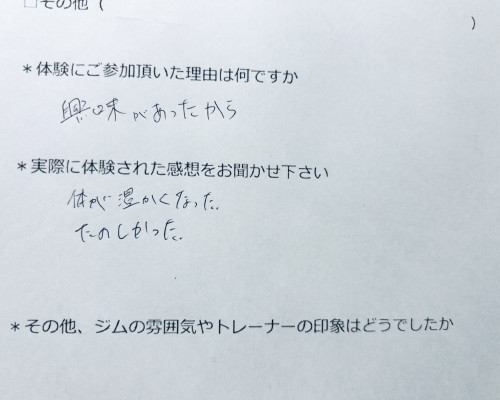 □その他（
）
＊体験にご参加頂いた理由は何ですか
興味があったから
＊実際に体験された感想をお聞かせ下さい
体が温かくなった.
たのしかった.
＊その他、ジムの雰囲気やトレーナーの印象はどうでしたか